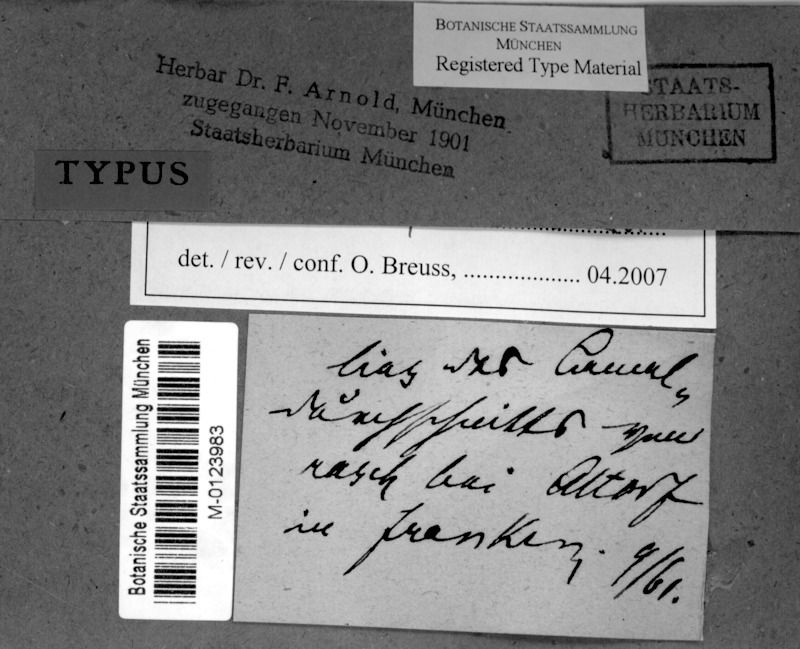 BOTANISCHE STAATSSAMMLUNG
MÜNCHEN
Registered Type Material
STAATS-
HERBARIUM
MÜNCHEN
Herbar Dr. F. Arnold, München
zugegangen November 1901
Staatsherbarium München
TYPUS
det. / rev. / conf. O. Breuss, .................... 04.2007
Botanische Staatssammlung München
M-0123983
lias des Canal-
durchschnitts von
rasch bei Altorf
in franken. 9/61.